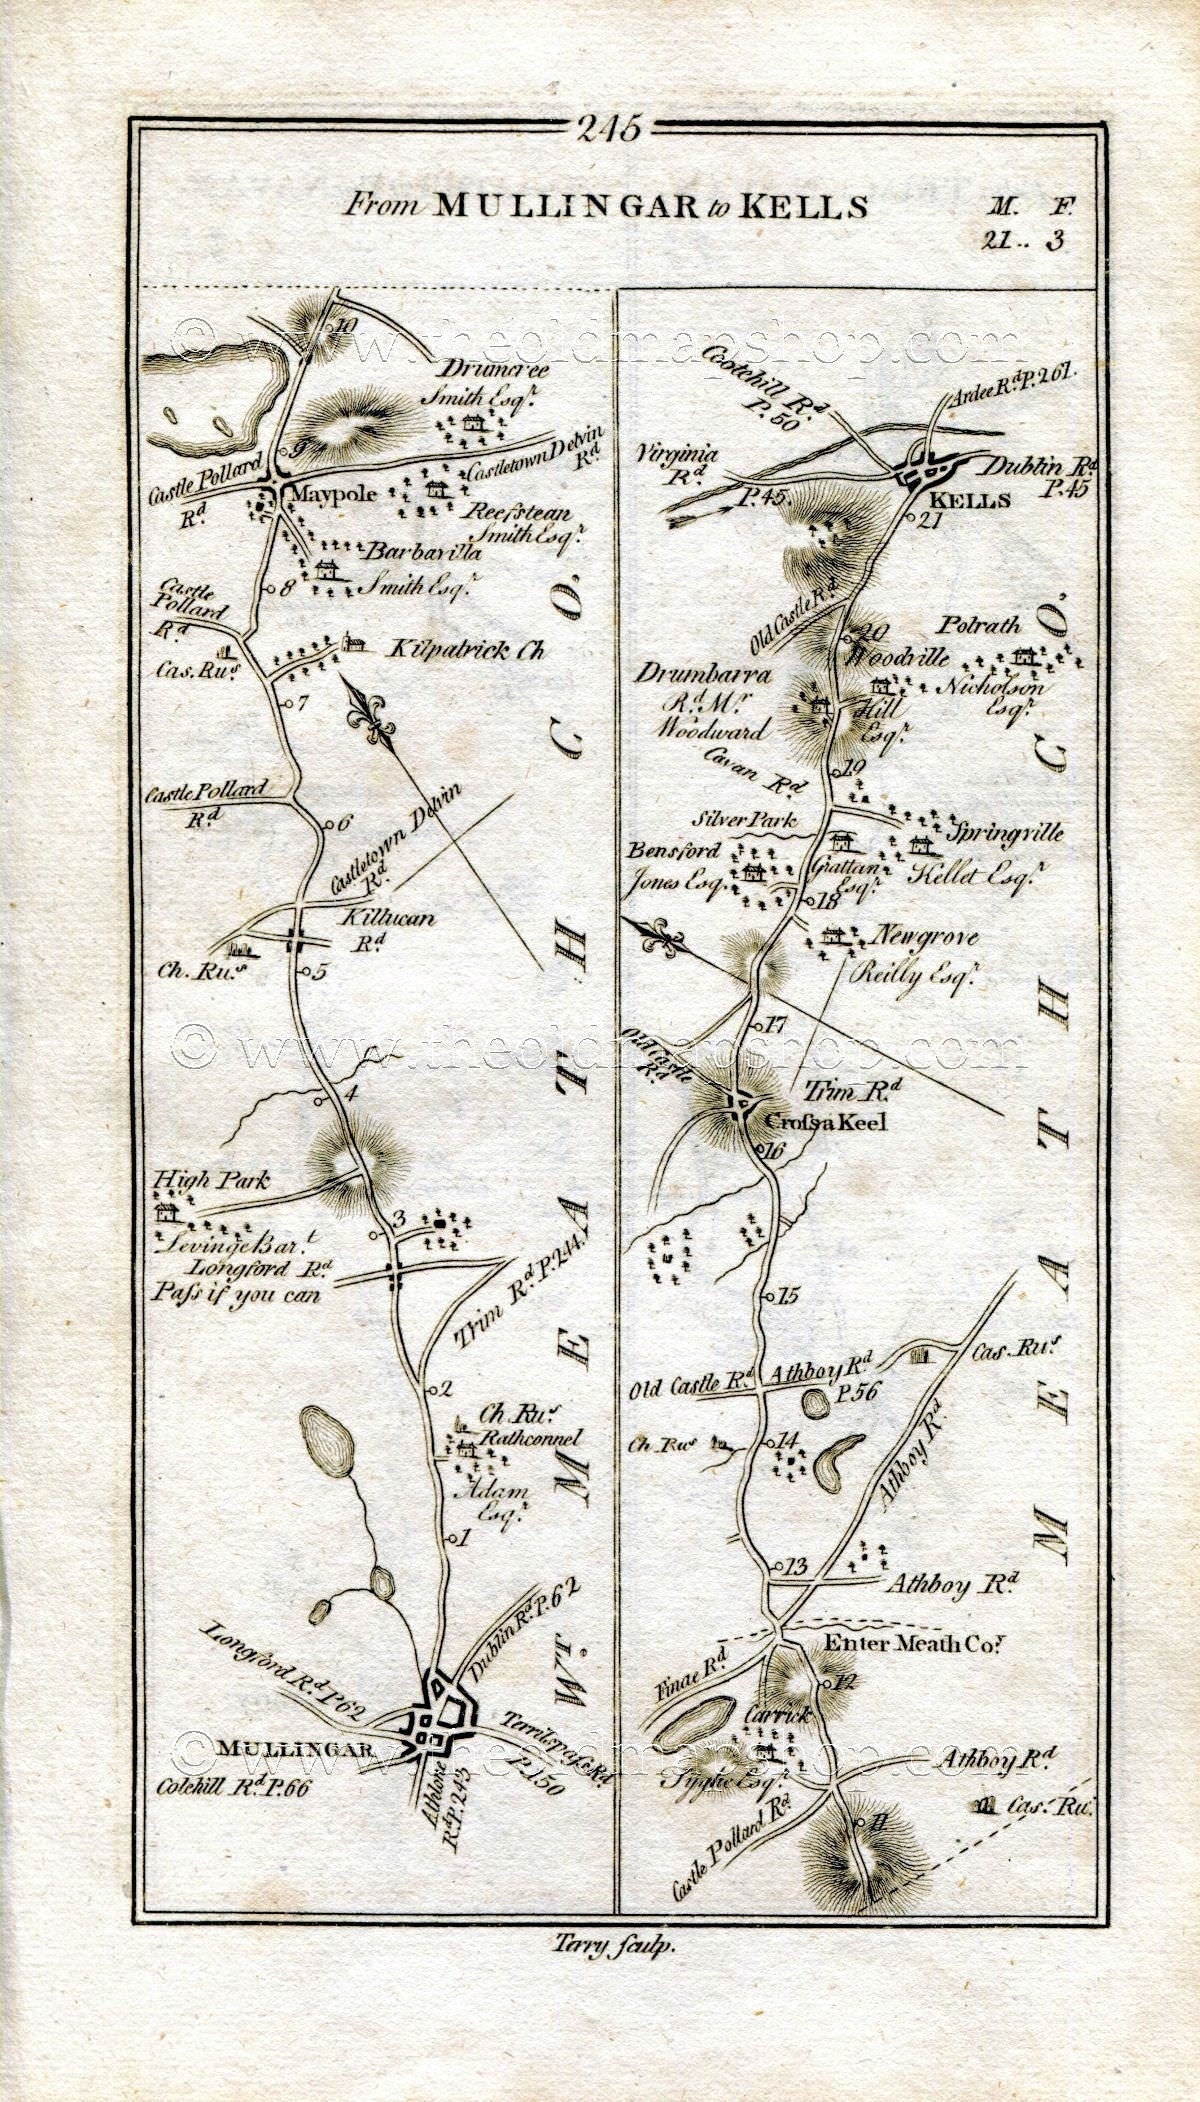 245
From MULLINGAR to KELLS
M. F.
21.. 3
© www.theoldmapshop.com
10
Drumcree
Smith Esqr.
9
Castle Pollard
Rd.
Castletown Delvin
Rd.
Maypole
Reefstean
Smith Esqr.
Barbavilla
Smith Esqr.
8
Castle
Pollard
Rd.
Kilpatrick Ch
Cas. Rus.
7
Castle Pollard
Rd.
6
Castletown Delvin
Rd.
Killucan
Rd.
Ch. Rus.
5
© www.theoldmapshop.com
4
High Park
3
Levinge Bart.
Longford Rd.
Pass if you can
Trim Rd. P. 244.
2
Ch. Rus.
Rathconnel
Adam
Esqr.
1
Longford Rd. P. 62
Dublin Rd. P. 62
MULLINGAR
Terrilspass Rd.
P. 150
Colehill Rd. P. 66
Athlone
Rd. P. 243
Wt. MEATH CO.
Cootehill Rd.
P. 50
Ardee Rd. P. 261.
Virginia
Rd.
P. 45.
Dublin Rd.
P. 45
KELLS
21
Old Castle Rd.
20
Polrath
Woodville
Drumbarra
Rd. Mr.
Woodward
Nicholson
Esqr.
Hill
Esqr.
Cavan Rd.
19
Silver Park
Springville
Bensford
Jones Esq.
Grattan
Esqr.
Kellet Esqr.
18
Newgrove
Reilly Esqr.
17
Old Castle
Rd.
Trim Rd.
Crossa Keel
16
15
Old Castle Rd.
Athboy Rd.
P. 56
Cas. Rus.
Ch Rus
14
Athboy Rd.
13
Athboy Rd.
Enter Meath Coy.
Finae Rd.
12
Carrick
© www.theoldmapshop.com
Athboy Rd.
Syghe Esqr.
Cas. Ru.
Castle Pollard Rd.
11
MEATH CO.
Terry sculp.